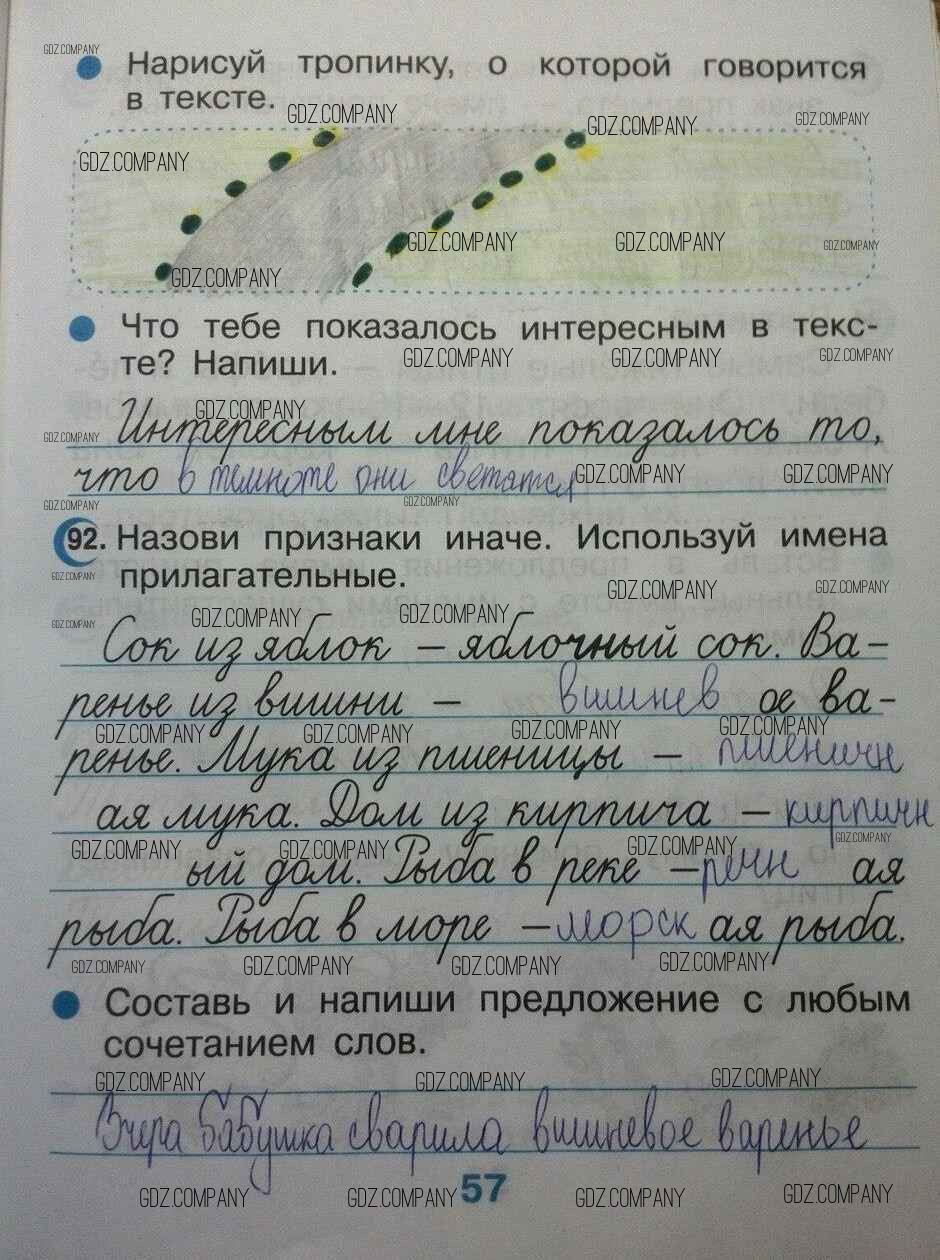 GDZ.COMPANY
Нарисуй тропинку, о которой говорится
в тексте.
GDZ.COMPANY GDZ.COMPANY GDZ.COMPANY
GDZ.COMPANY
GDZ.COMPANY GDZ.COMPANY GDZ.COMPANY
GDZ.COMPANY
Что тебе показалось интересным в текс-
те? Напиши.
GDZ.COMPANY GDZ.COMPANY GDZ.COMPANY
GDZ.COMPANY
Интересным мне показалось то,
GDZ.COMPANY
что в темноте они светятся
GDZ.COMPANY GDZ.COMPANY
GDZ.COMPANY GDZ.COMPANY
92. Назови признаки иначе. Используй имена
прилагательные.
GDZ.COMPANY GDZ.COMPANY GDZ.COMPANY
GDZ.COMPANY GDZ.COMPANY GDZ.COMPANY
Сок из яблок – яблочный сок. Ва-
ренье из вишни – вишнев ое ва-
GDZ.COMPANY GDZ.COMPANY GDZ.COMPANY GDZ.COMPANY
ренье. Мука из пшеницы – пшеничн
ая мука. Дом из кирпича – кирпичн
GDZ.COMPANY GDZ.COMPANY GDZ.COMPANY GDZ.COMPANY
ый дом. Рыба в реке – речн ая
рыба. Рыба в море – морск ая рыба.
GDZ.COMPANY GDZ.COMPANY GDZ.COMPANY GDZ.COMPANY
Составь и напиши предложение с любым
сочетанием слов.
GDZ.COMPANY GDZ.COMPANY GDZ.COMPANY
Вчера бабушка сварила вишневое варенье
57
GDZ.COMPANY GDZ.COMPANY GDZ.COMPANY GDZ.COMPANY